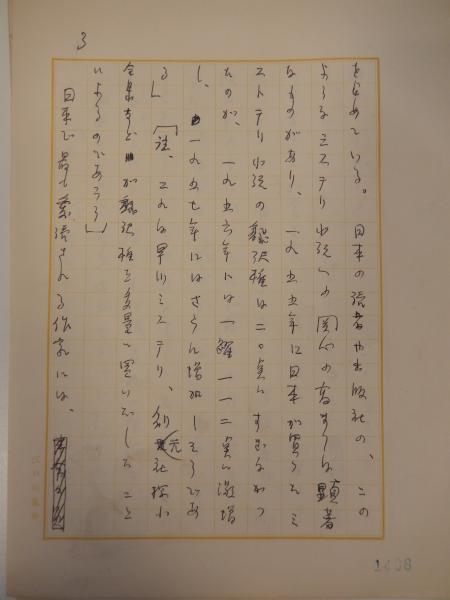 3
を占めている。日本の読者や出版社の、この
ようなミステリ小説への関心の高まりは顕著
なものがあり、一九五五年に日本が買ったミ
ステリ小説の飜訳権は二〇点にすぎなかっ
たのが、一九五六年には一躍一一二点に激増
し、一九五七年にはさらに増加しそうであ
る」［註、これは早川ミステリ、創元社
全集などが飜訳権を多量に買いだしたこと
によるのであろう］
日本で最も愛読される作家には、
1408